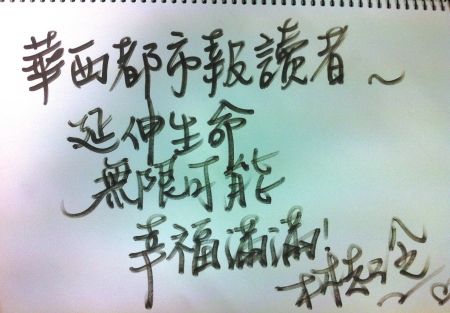 華西都市報讀者~
延伸生命
無限可能
幸福滿滿!